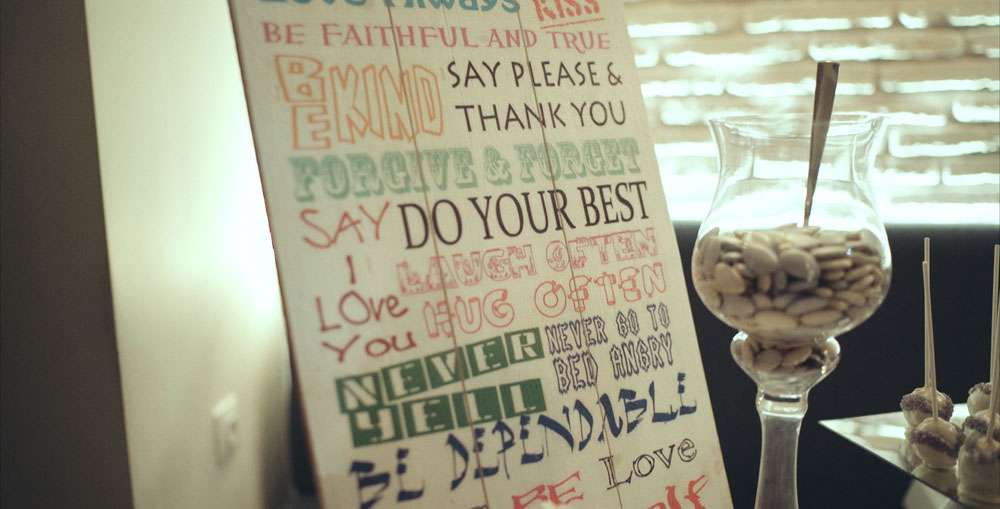 Love Always KISS
BE FAITHFUL AND TRUE
BE KIND SAY PLEASE &
THANK YOU
FORGIVE & FORGET
SAY DO YOUR BEST
I LAUGH OFTEN
LOve HUG OFTEN
You
NEVER NEVER GO TO
YELL BED ANGRY
BE DEPENDABLE
Love
BE